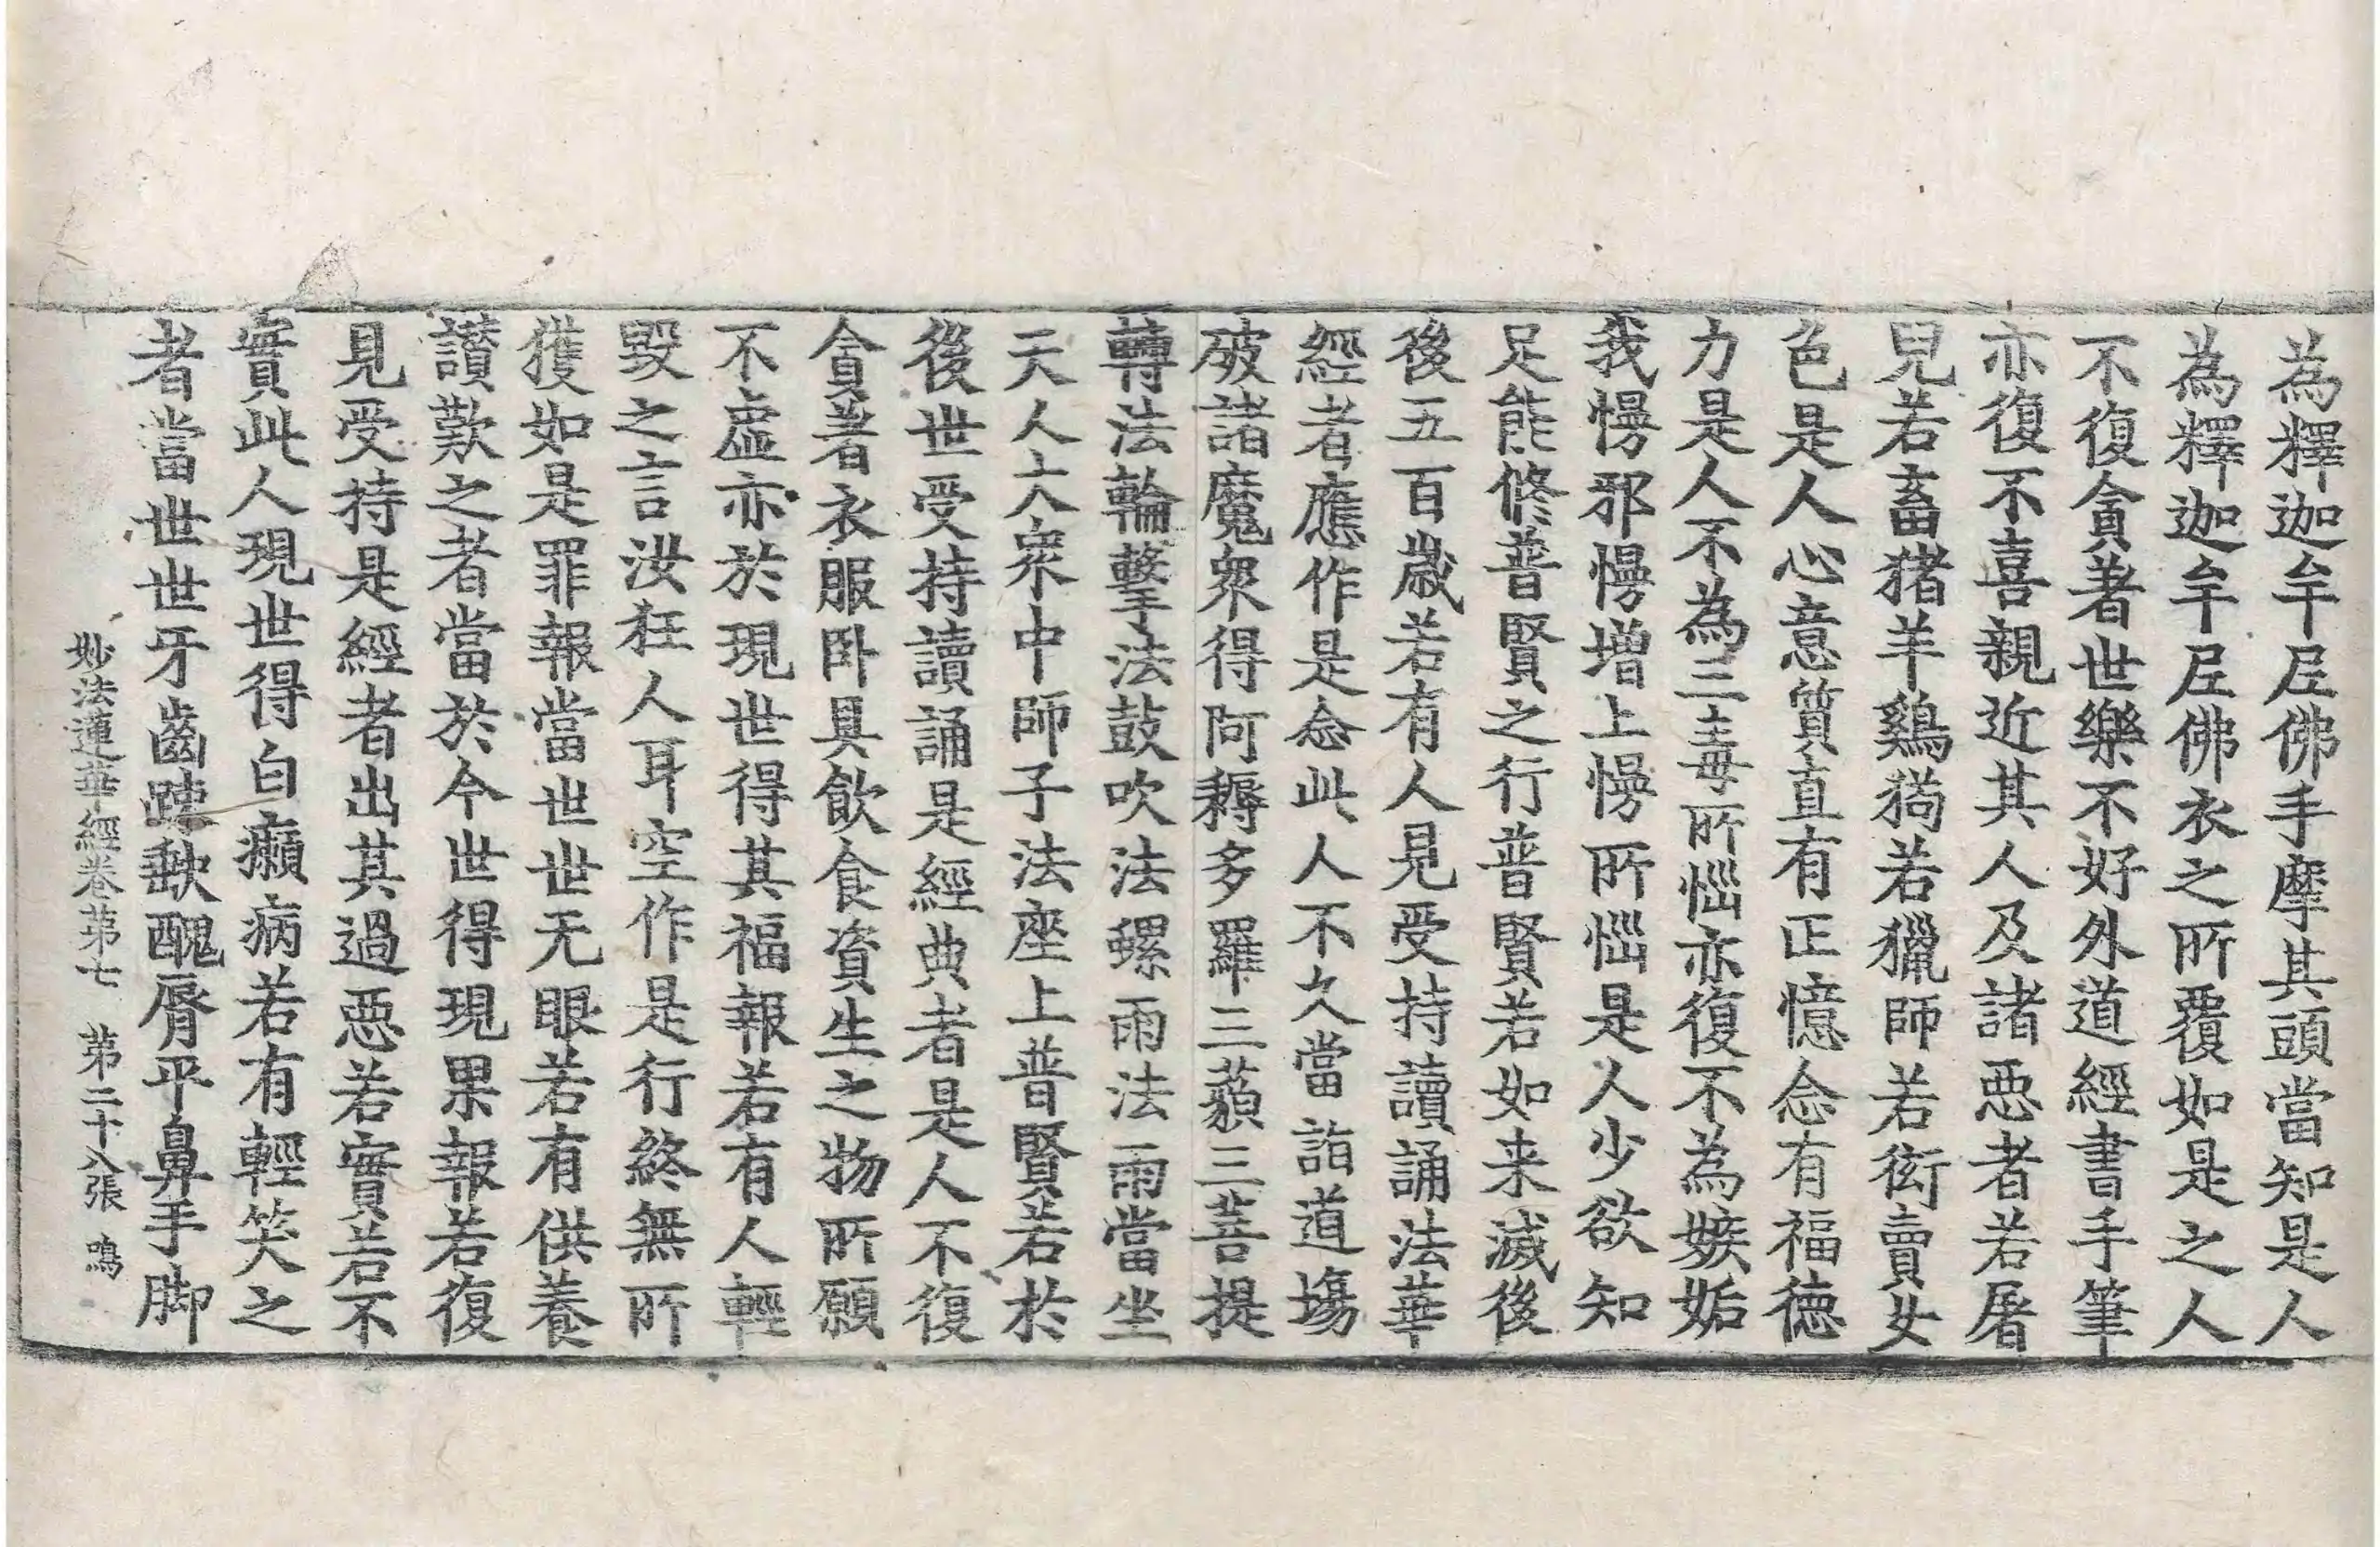 為釋迦牟尼佛手摩其頭當知是人
為釋迦牟尼佛衣之所覆如是之人
不復貪著世樂不好外道經書手筆
亦復不喜親近其人及諸惡者若屠
兒若畜猪羊鷄狗若獵師若衒賣女
色是人心意質直有正憶念有福德
力是人不為三毒所惱亦復不為嫉妬
我慢邪慢增上慢所惱是人少欲知
足能修普賢之行普賢若如来滅後
後五百歲若有人見受持讀誦法華
經者應作是念此人不久當詣道場
破諸魔衆得阿耨多羅三藐三菩提
轉法輪擊法鼓吹法螺雨法雨當坐
天人大衆中師子法座上普賢若於
後世受持讀誦是經典者是人不復
貪著衣服卧具飲食資生之物所願
不虛亦於現世得其福報若有人輕
毀之言汝狂人耳空作是行終無所
獲如是罪報當世世无眼若有供養
讃歎之者當於今世得現果報若復
見受持是經者出其過惡若實若不
實此人現世得白癩病若有輕笑之
者當世世牙齒踈缺醜脣平鼻手脚
妙法蓮華經卷第七 第二十八張 鳴